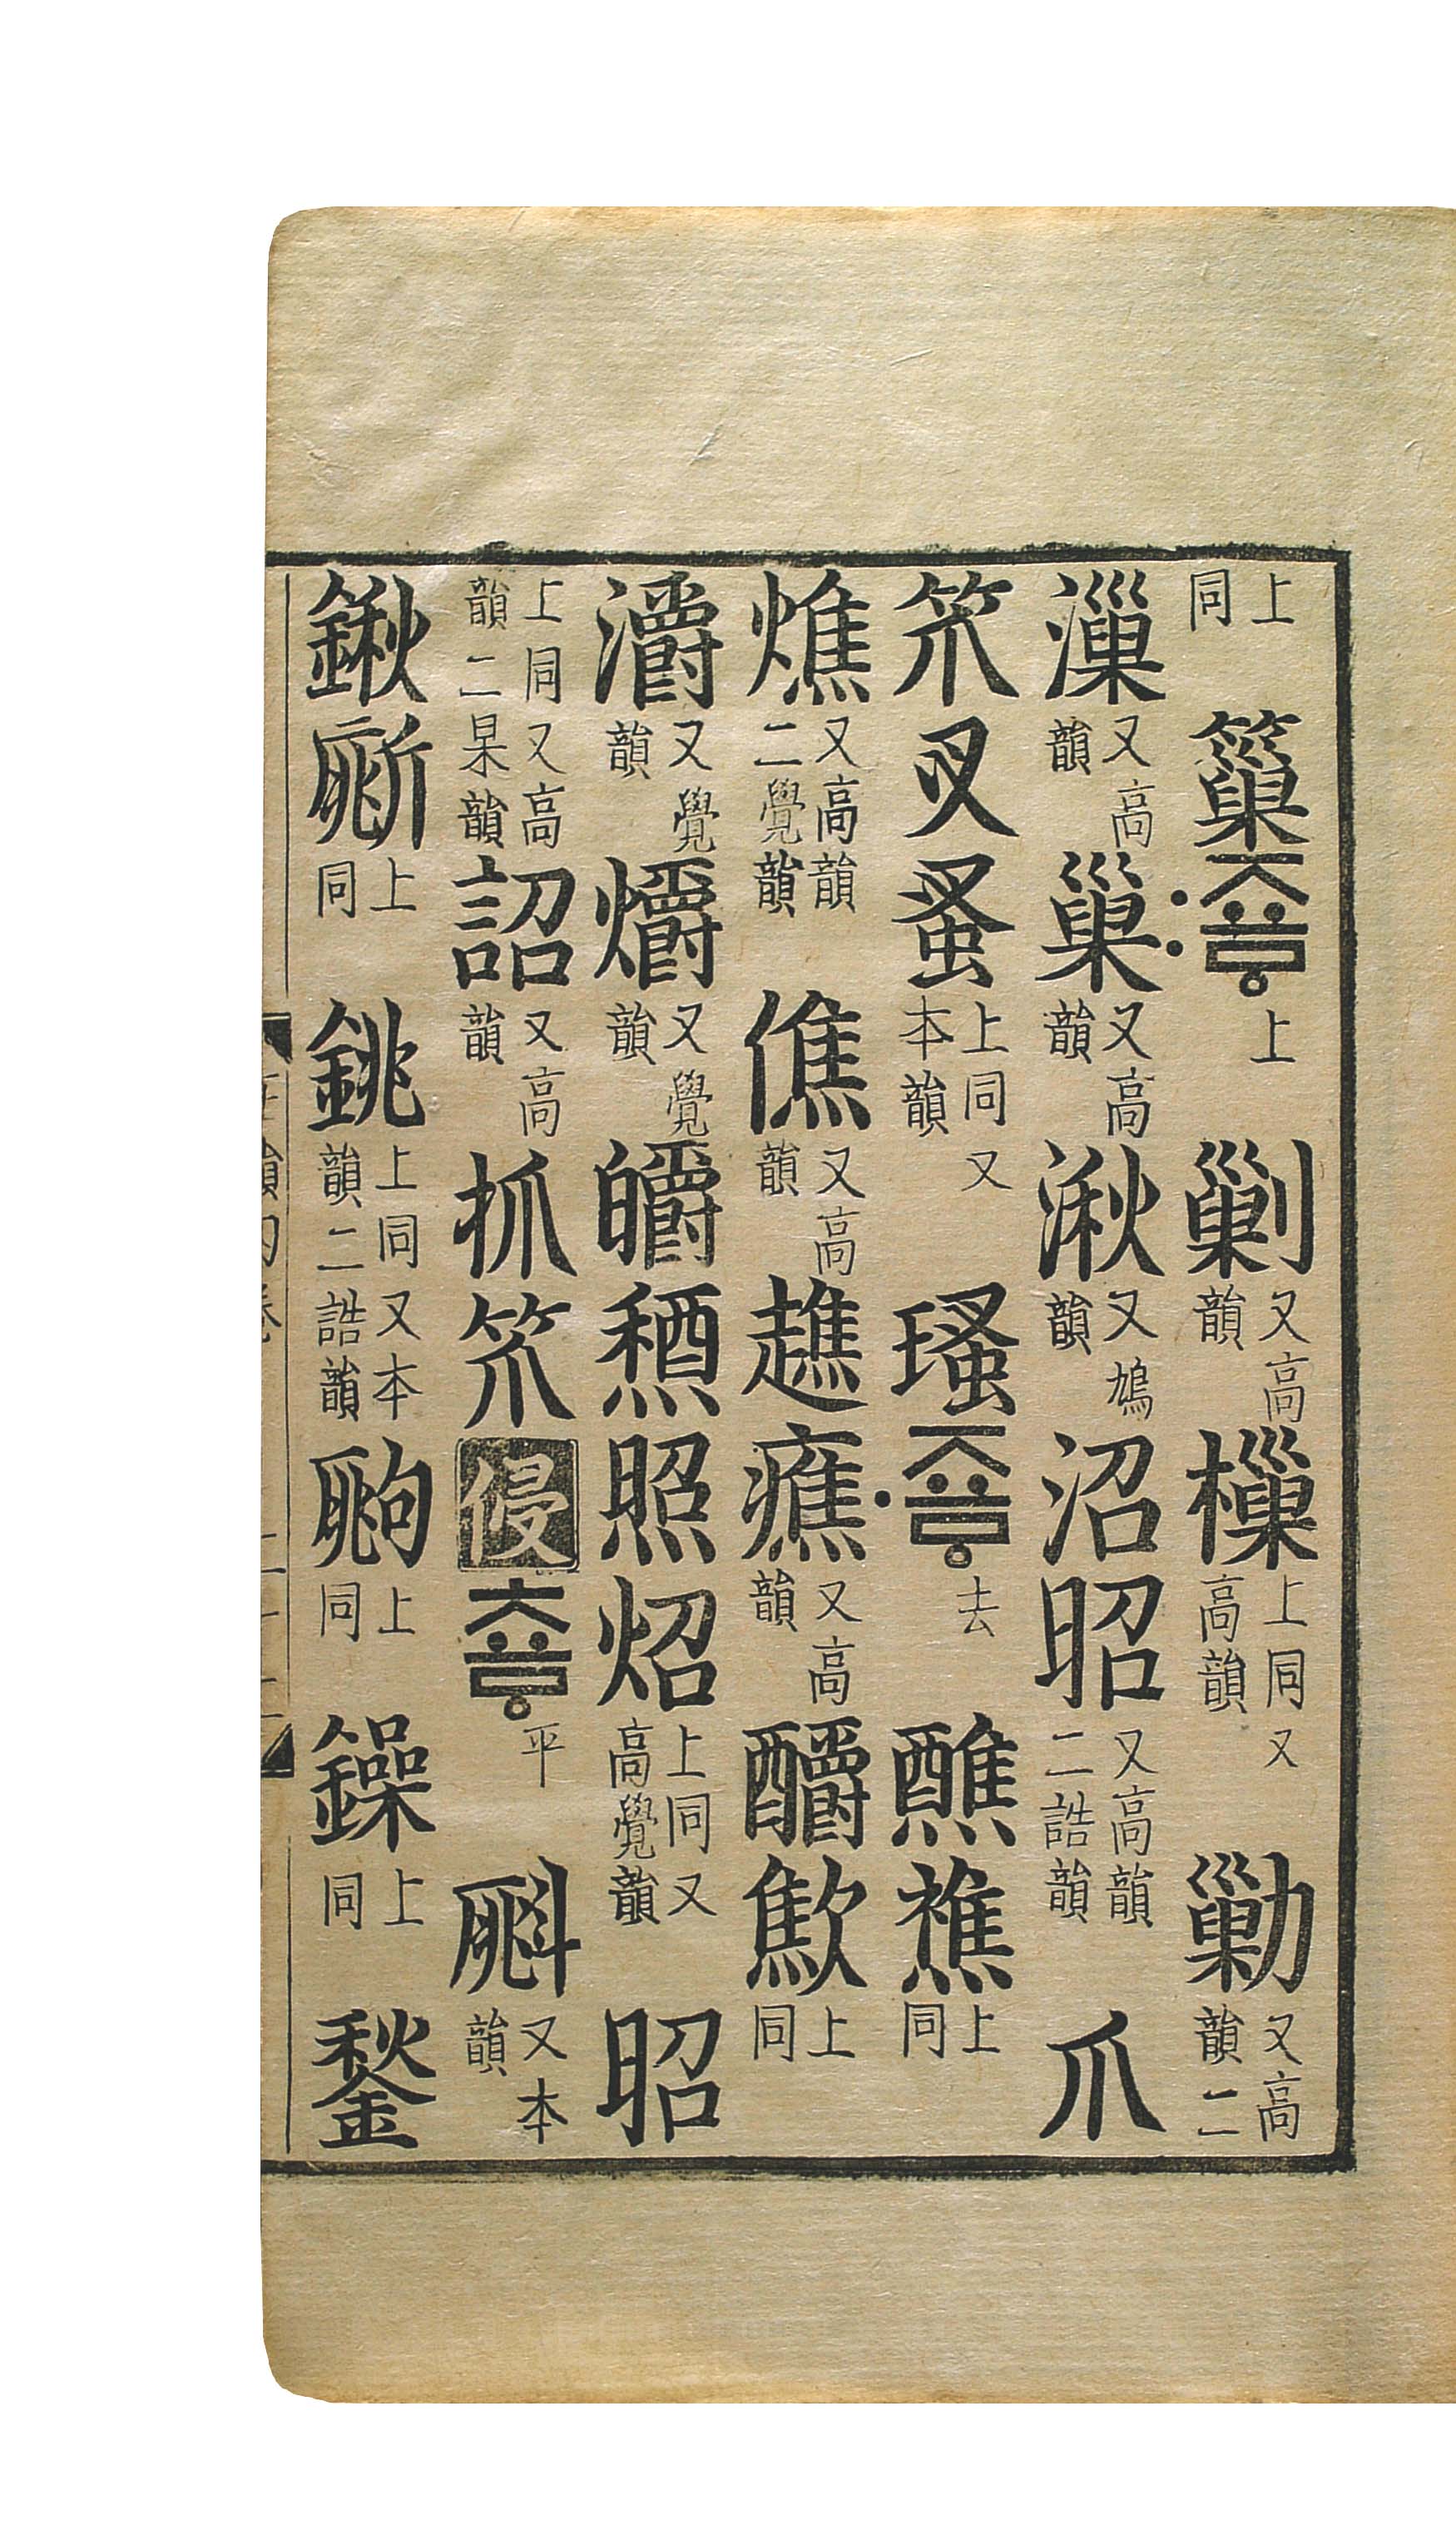 上同 𥳽 上 剿 又高韻 樔 上同又高韻 勦 又高韻二
漅 又高韻 巢 又高韻 湫 又鳩韻 沼 昭 又高韻二誥韻 爪
笊 叉 蚤 上同又本韻 瑵 去 醮 𥛲 上同
燋 又高韻二覺韻 僬 又高韻 趭 癄 又高韻 釂 𣤶 上同
灂 又覺韻 爝 又覺韻 皭 照 炤 上同又高覺韻 昭
上同又高韻二杲韻 詔 又高韻 抓 笊 侵 쯩 平 𣂁 又本韻
鍬 上同 銚 上同又本韻二誥韻 上同 鐰 上同 鍫